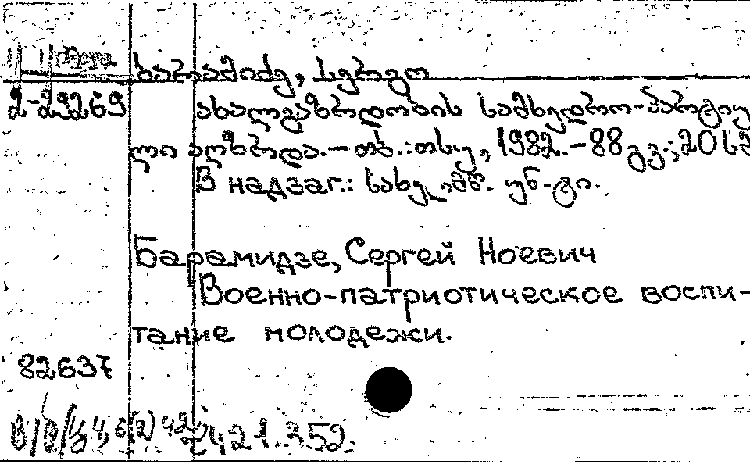 ბარამიძე, სერგო
2-29269 ახალგაზრდობის სამხედრო-პატრიუ
ლი აღზრდა.– თბ.: თსუ, 1982.–88 გვ.; 20 სმ
В надзаг.: სახელმწ. უნ-ტი.
Барамидзе, Сергей Ноевич
Военно-патриотическое воспи-
тание молодежи.
82637
421.352.